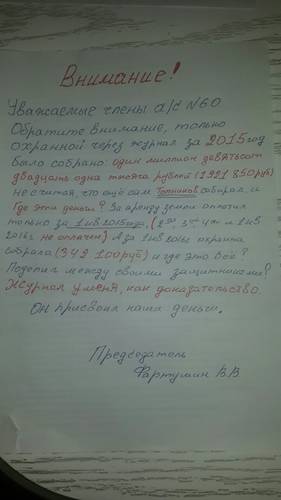 Внимание!
Уважаемые члены а/с №60.
Обратите внимание, только
охранной через журнал за 2015 год
было собрано: один миллион девятьсот
двадцать одна тысяча рублей (1921 850 руб)
не считая, что ещё сам собирал, и
Где эти деньги? За аренду земли оплатил
только за 1 кв 2015 года. (2ой, 3 4 и 1 кв
2016 г не оплачен) А за 1 кв 2016 г охрана
собрала (342 100 руб) и где это всё?
Поделил между своими защитниками?
Журнал у меня, как доказательство.
Он присвоил наши деньги.
Председатель
Фартушин В.В